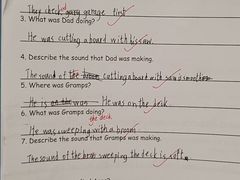 They check gary garage first
3. What was Dad doing?
He was cutting a board with his saw.
4. Describe the sound that Dad was making.
The sound of the cutting a board with saw is smooth
5. Where was Gramps?
He is on the was He was on the deck.
6. What was Gramps doing?
the deck
He was sweeping with a broom
7. Describe the sound that Gramps was making.
The sound of the sweeping the deck is soft.